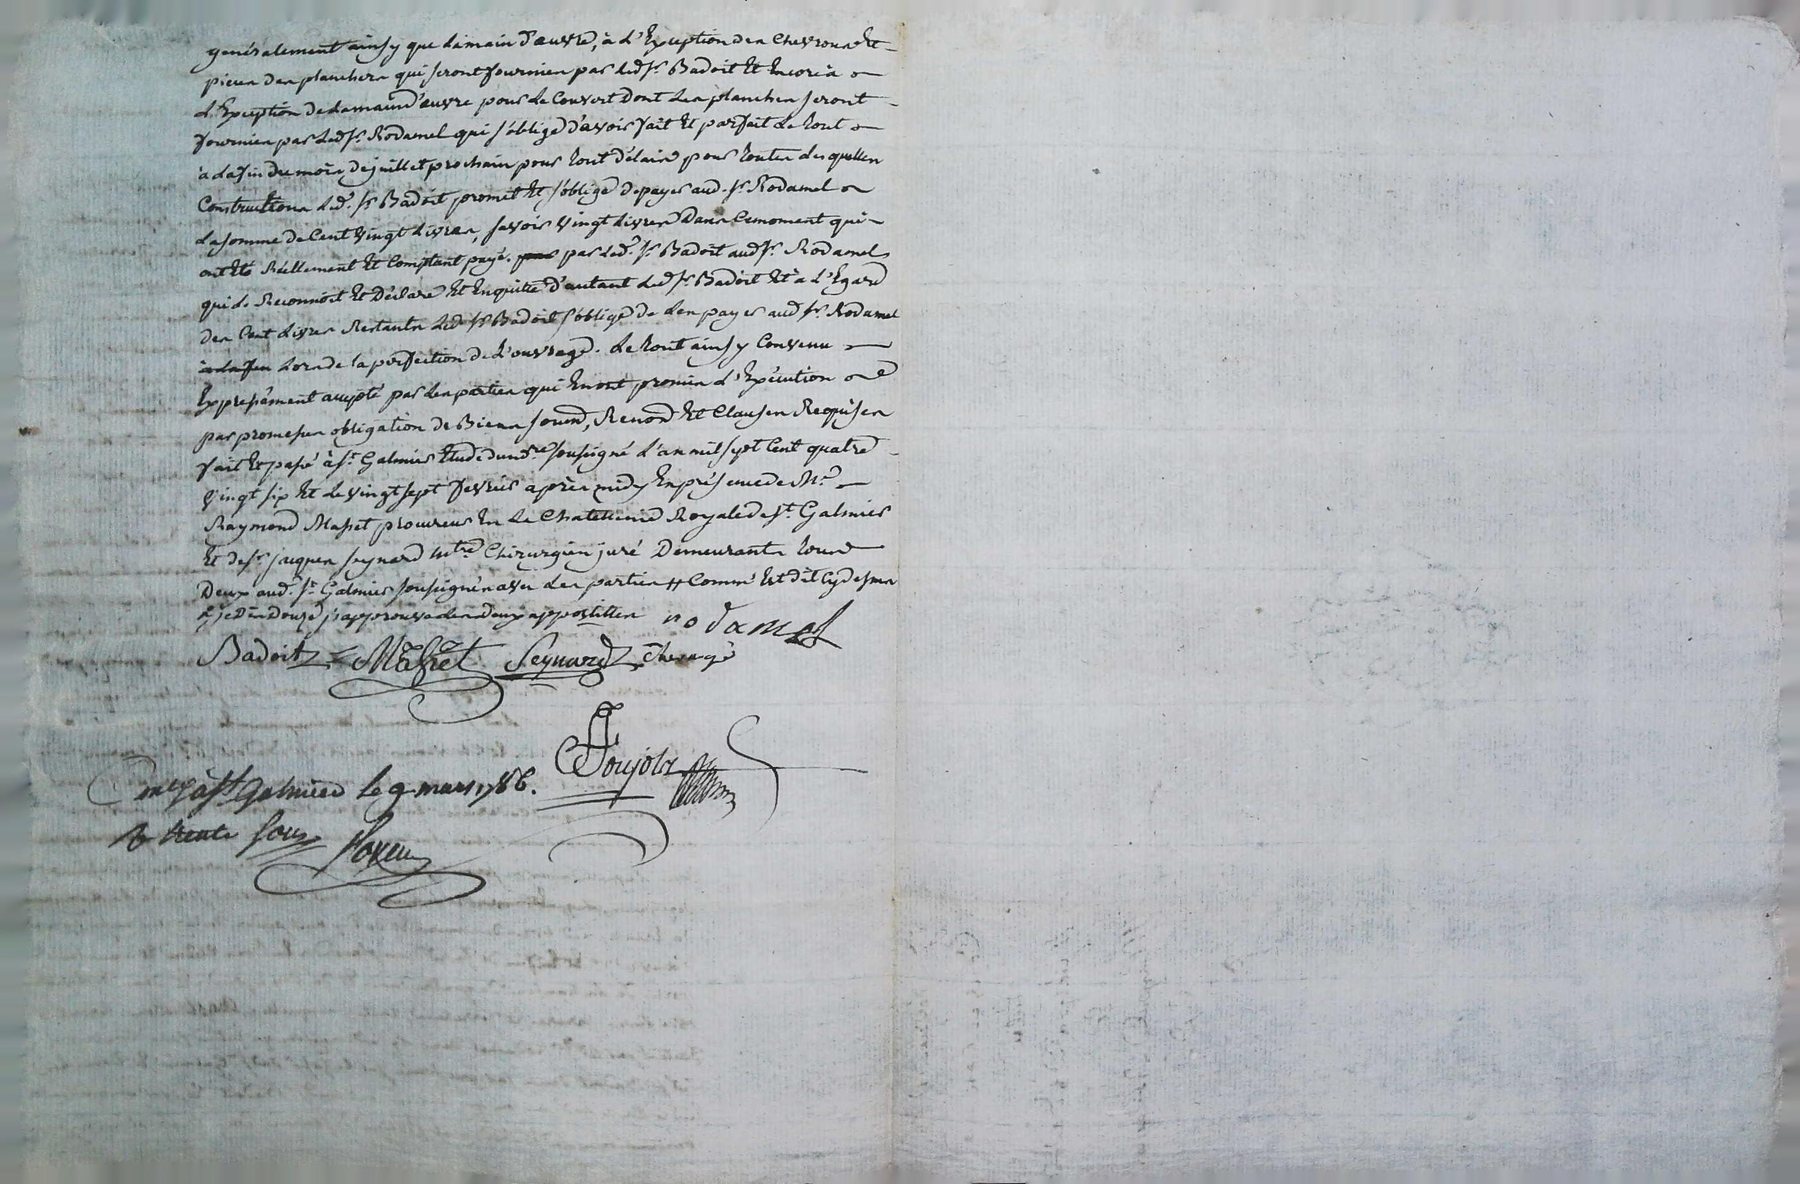 generalement ainsy que lamain d'œuvre, à l'Exception des Chevrons Et
pieces des planchers qui seront fournies par led. Sr. Badoit Et Encore à
l'Exception de lamaind'œuvre pour le Couvert Dont les planches seront
fournies par led. Sr. Rodamel qui s'oblige d'avoir fait Et parfait le tout
à lafin dumois dejuillet prochain pour tout délais pour toutes lesquelles
Constructions led. Sr. Badoit promet Et s'oblige depayer aud. Sr. Rodamel
lasomme de Cent Vingt Livres, savoir Vingt Livres Dans Cemoment qui
ont Eté Réellement Et Comptant payé par led. Sr. Badoit aud. Sr. Rodamel
qui le Reconnoit Et Déclare Et Enquitte d'autant led. Sr. Badoit Et à l'Egard
des Cent Livres Restants led. Sr. Badoit s'oblige de les payer aud. Sr. Rodamel
à lafin Lors de la perfection de l'ouvrage. Le tout ainsy Convenu
Expressément accepté par les parties qui En ont promis l'Exécution
par promesses obligation de Biens soumd, Renond Et Clauses Requises
fait Et passé à St. Galmier Etude du nre. soussigné l'an mil sept Cent quatre
Vingt six Et le vingt sept fevrier après midy En présence de Me.
Raymond Masset procureur En la Chatellenie Royale de St. Galmier
Et de Sr. jacques Seynard mtre Chirurgien juré Demeurants tous
Deux aud. St. Galmier soussignés avec les parties # Comme Est dit Cydessus
j'approuve les Deux appostilles rodamel
Badoit Masset Seynard
Poujols
Contlé à St Galmier le 9 mars 1786.
R trente sous